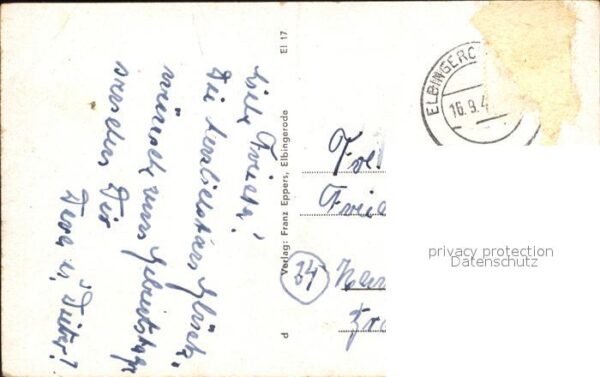 Liebe Frieda!
Die herzlichsten Glück-
wünsche zum Geburtstage
senden Dir
u. Dieter!
El 17
Verlag: Franz Eppers, Elbingerode
d
ELBINGERO
16.9.4
Frie
privacy protection
Datenschutz